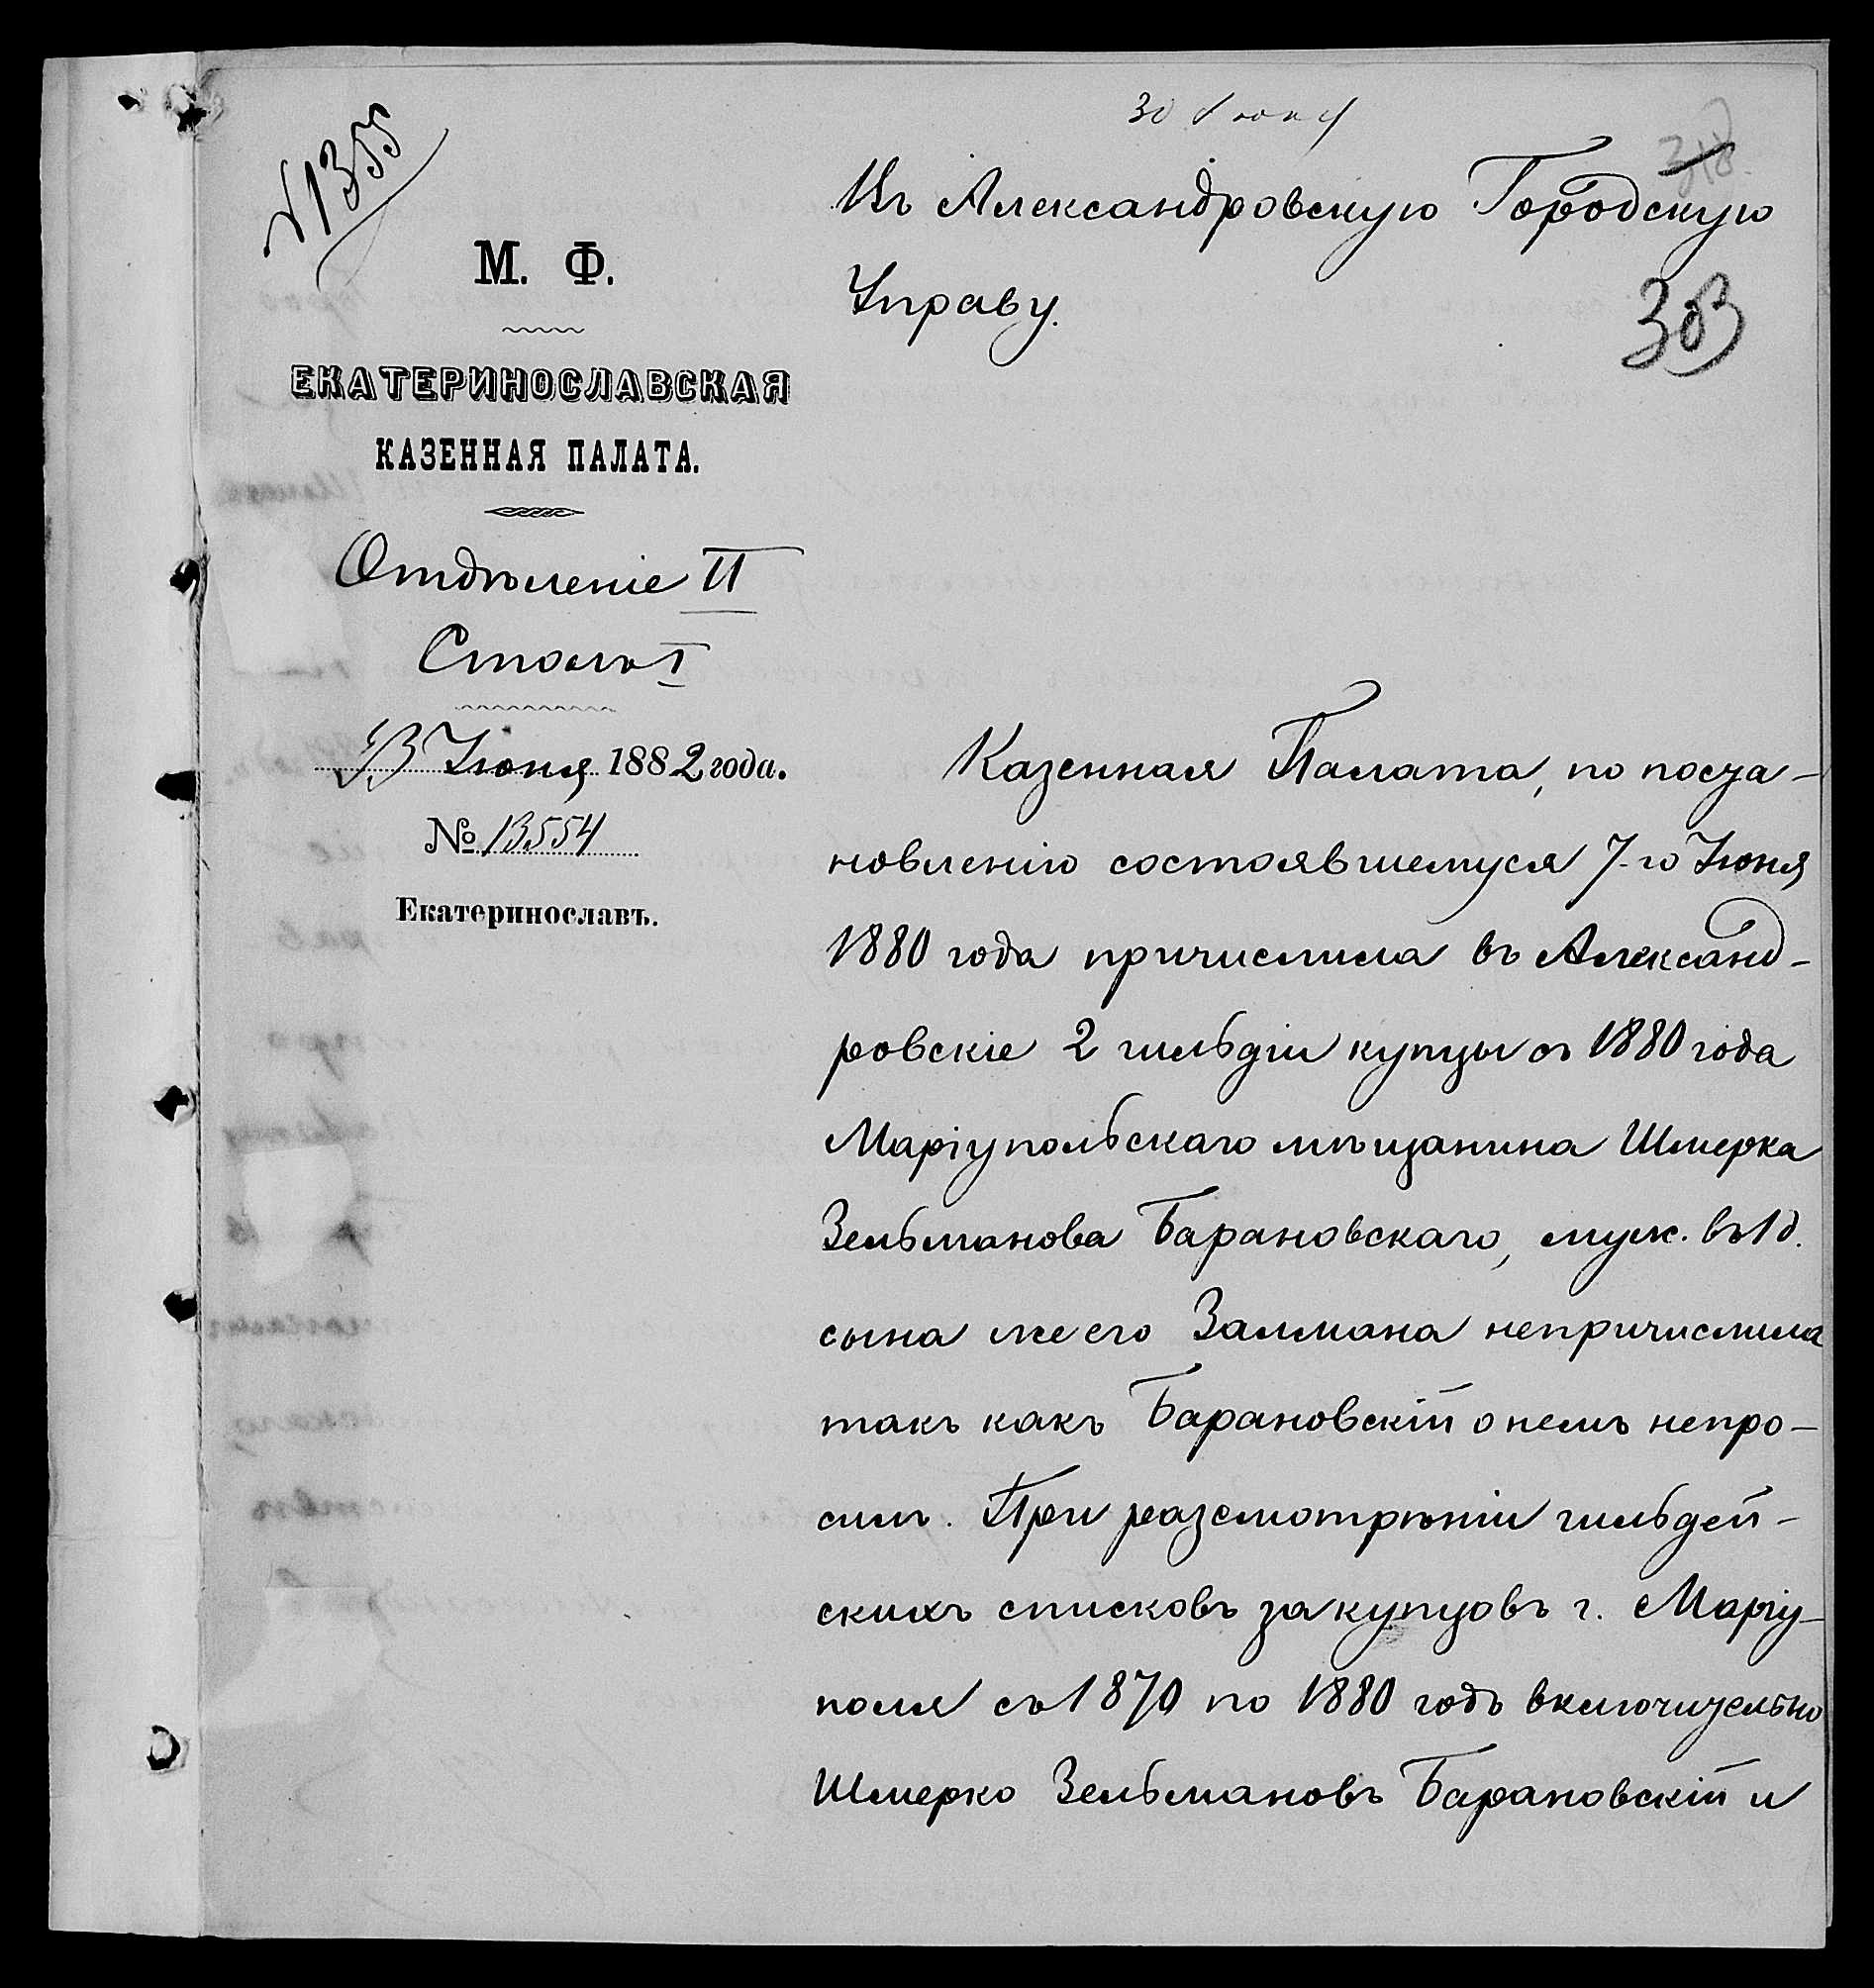 30 Июня
№1355
Въ Александровскую Городскую
Управу.
303
М. Ф.
ЕКАТЕРИНОСЛАВСКАЯ
КАЗЕННАЯ ПАЛАТА.
Отдѣленіе II
Столъ I
Июня 1882 года.
№ 13554
Екатеринославъ.
Казенная Палата, по поста-
новленію состоявшемуся 7-го Июня
1880 года причислила въ Александ-
ровскіе 2 гильдіи купцы съ 1880 года
Маріупольскаго мѣщанина Шмерка
Зельманова Барановскаго, муж. въ 1 д.
сына же его Залмана непричислила
такъ какъ Барановскій о немъ непро-
силъ. При разсмотрѣніи гильдей-
скихъ списковъ за купцовъ г. Маріу-
поля съ 1870 по 1880 годъ включительно
Шмерко Зельмановъ Барановскій и